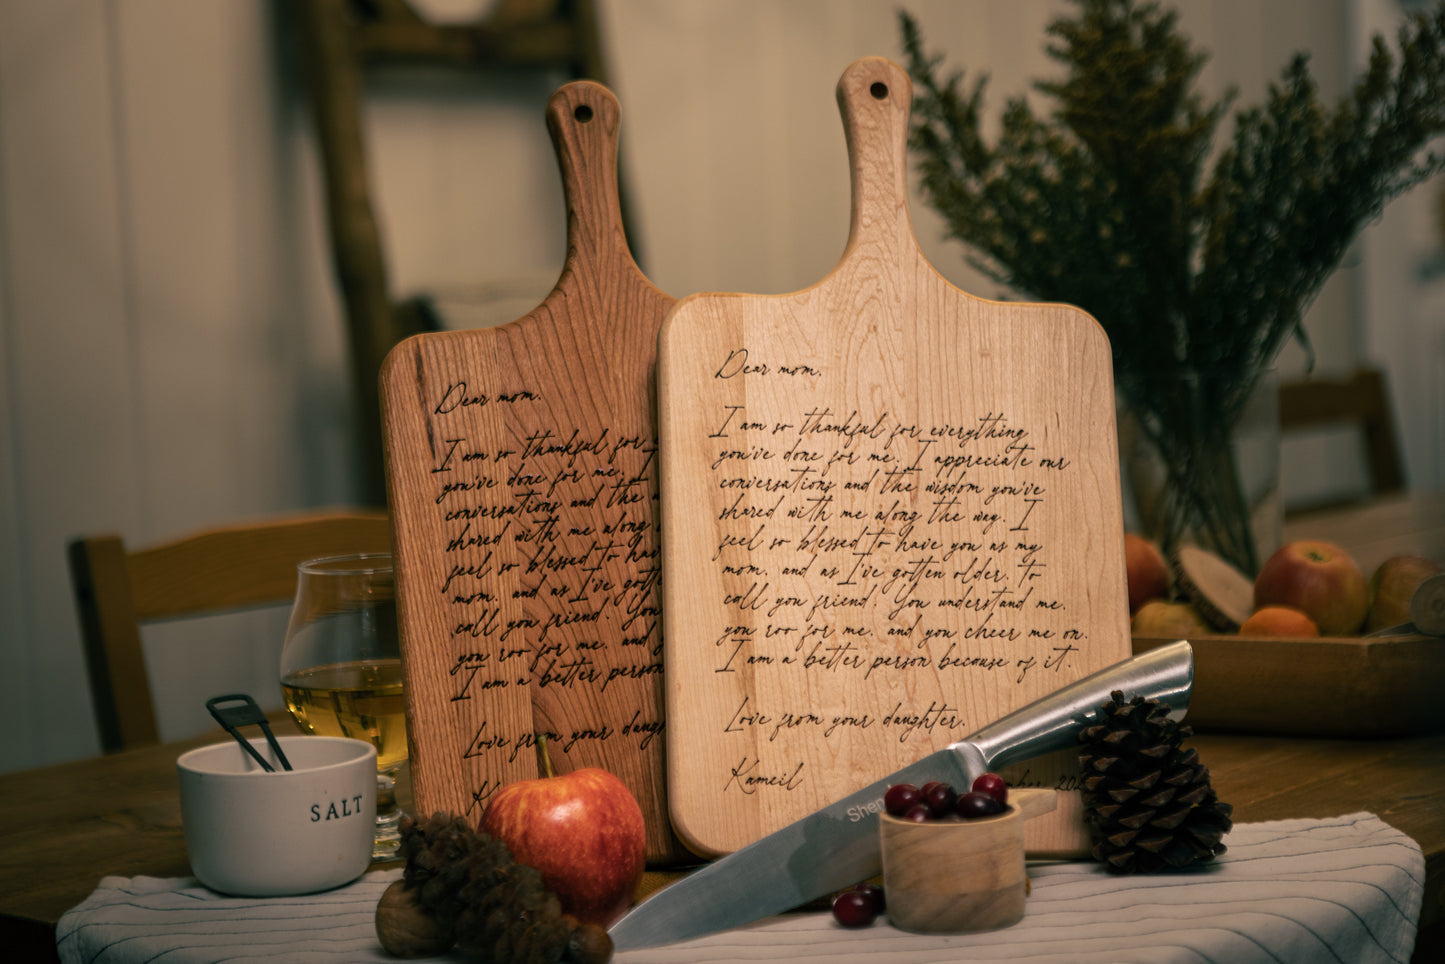 Dear mom.
I am so thankful for
you've done for me. I
conversations and the
shared with me along
feel so blessed to hav
mom. and as I've gotte
call you friend. You
you roo for me. and y
I am a better person
Love from your daugh
K
Dear mom.
I am so thankful for everything
you've done for me. I appreciate our
conversations and the wisdom you've
shared with me along the way. I
feel so blessed to have you as my
mom. and as I've gotten older. to
call you friend. You understand me.
you roo for me. and you cheer me on.
I am a better person because of it.
Love from your daughter.
Kameil
mber 202
SALT
Shen